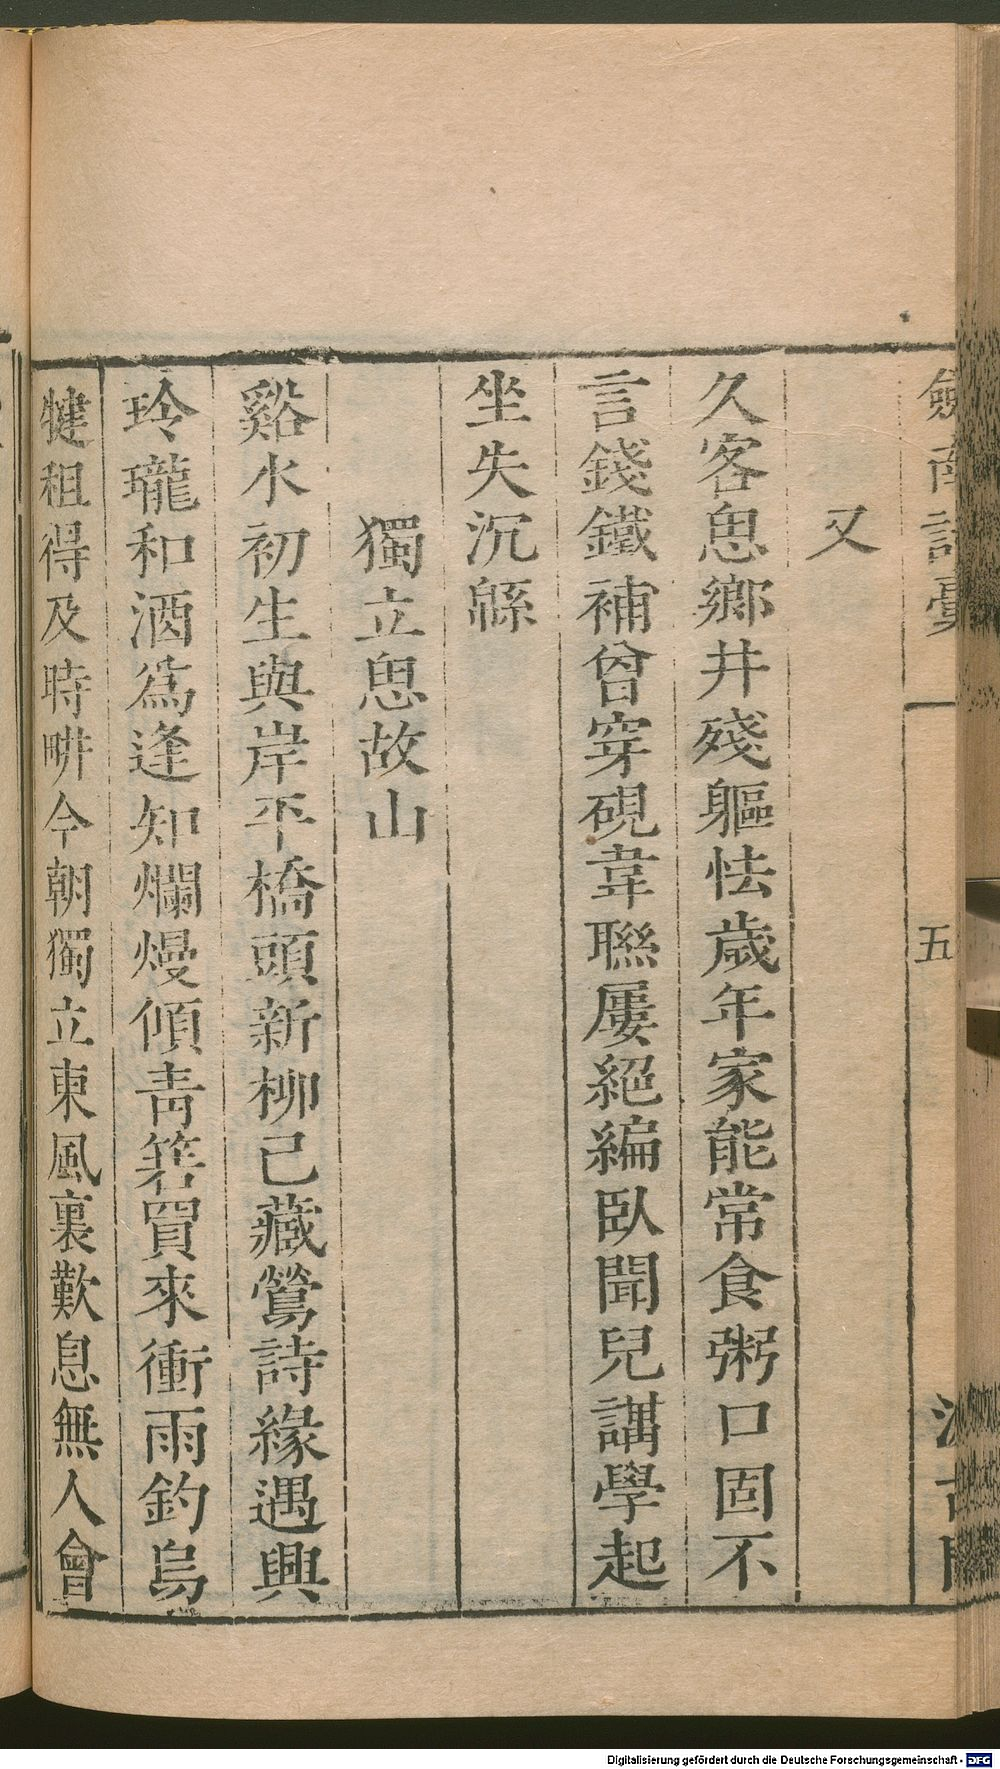 劍南詩稾
五
汲古閣
又
久客思鄉井殘軀怯歲年家能常食粥口固不
言錢鐵補曾穿硯韋聯屢絕編臥聞兒講學起
坐失沉緜
獨立思故山
谿水初生與岸平橋頭新柳已藏鶯詩緣遇興
玲瓏和酒爲逢知爛熳傾靑箬買來衝雨釣烏
犍租得及時畊今朝獨立東風裏歎息無人會
Digitalisierung gefördert durch die Deutsche Forschungsgemeinschaft - DFG